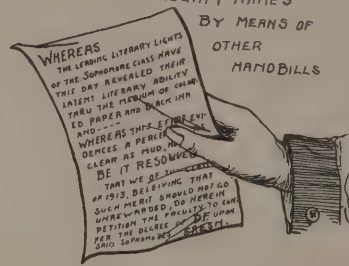 NAMES
BY MEANS OF
OTHER
HANDBILLS
WHEREAS
THE LEADING LITERARY LIGHTS
OF THE SOPHOMORE CLASS HAVE
THIS DAY REVEALED THEIR
LATENT LITERARY ABILITY
THRU THE MEDIUM OF COLOR-
ED PAPER AND BLACK INK
AND----
WHEREAS THIS EVI-
DENCES A
CLEAR AS MUD,
BE IT RESOLVED
THAT WE OF THE CLASS
OF 1913, BELEIVING THAT
SUCH MERIT SHOULD NOT GO
UNREWARDED, DO HEREIN
PETITION THE FACULTY TO CON-
FER THE DEGREE OF D.F. UPON
SAID SOPHOMORES FRESH.